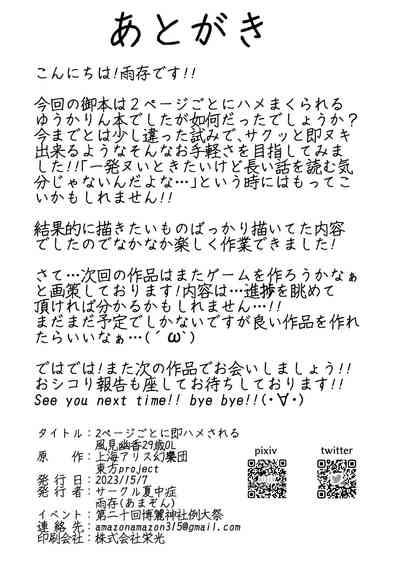 あとがき
こんにちは!雨存です!!
今回の御本は２ページごとにハメまくられる
ゆうかりん本でしたが如何だったでしょうか？
今までとは少し違った試みで、サクッと即ヌキ
出来るようなそんなお手軽さを目指してみま
した!!「一発ヌいときたいけど長い話を読む気
分じゃないんだよな…」という時にはもってこ
いかもしれません!!
結果的に描きたいものばっかり描いてた内容
でしたのでなかなか楽しく作業できました!
さて…次回の作品はまたゲームを作ろうかなぁ
と画策しております!内容は…進捗を眺めて
頂ければ分かるかもしれません…!!
まだまだ予定でしかないですが良い作品を作れ
たらいいなぁ…(´ω`)
ではでは!また次の作品でお会いしましょう!!
おシコり報告も座してお待ちしております!!
See you next time!! bye bye!!(・∀・)
タイトル：2ページごとに即ハメされる
風見幽香29歳OL
原　　作：上海アリス幻樂団
東方project
発 行 日：2023/15/7
発 行 者：サークル夏中症
雨存(あまぞん)
イベント：第二十回博麗神社例大祭
連 絡 先：amazonamazon315@gmail.com
印刷会社：株式会社栄光
pixiv
twitter